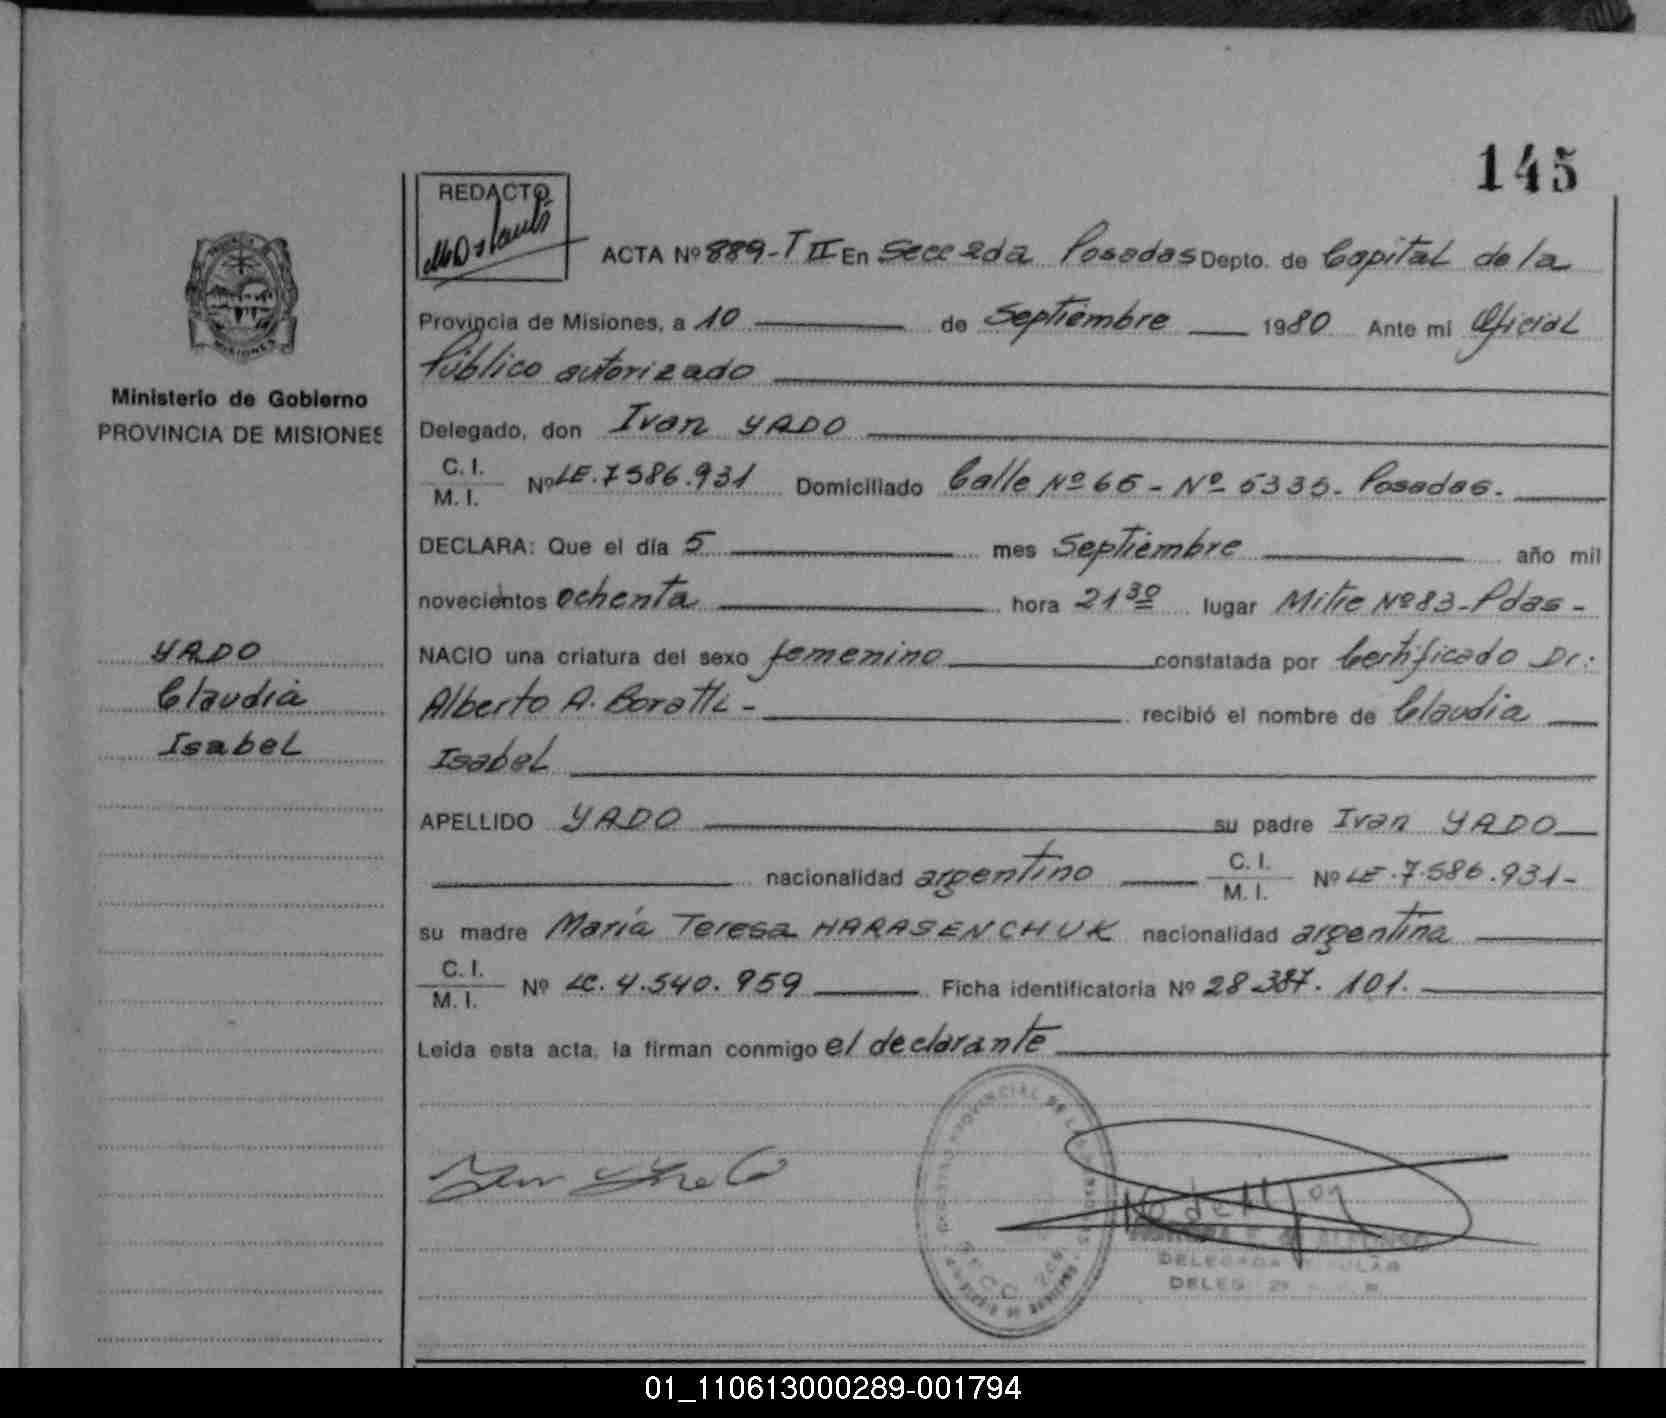 145
REDACTO
ACTA Nº 889-T II En Secc 2da Posadas Depto. de Capital de la
Provincia de Misiones, a 10 de Septiembre 1980 Ante mi Oficial
Público autorizado
MISIONES
Ministerio de Gobierno
PROVINCIA DE MISIONES
Delegado, don Ivan YADO
C. I.
M. I. Nº LE. 7586.931 Domiciliado Calle Nº 65 - Nº 5335. Posadas.
DECLARA: Que el día 5 mes Septiembre año mil
novecientos ochenta hora 21 30 lugar Mitre Nº 83 - Pdas -
YADO
NACIO una criatura del sexo femenino constatada por Certificado Dr:
Claudia
Alberto A. Boratti - recibió el nombre de Claudia
Isabel
Isabel
APELLIDO YADO su padre Ivan YADO
nacionalidad argentino C. I.
M. I. Nº LE. 7.586.931-
su madre María Teresa HARASENCHUK nacionalidad argentina
C. I.
M. I. Nº LC. 4.540.959 Ficha identificatoria Nº 28.387.101.
Leída esta acta, la firman conmigo el declarante
DELEGADA TITULAR
01_110613000289-001794